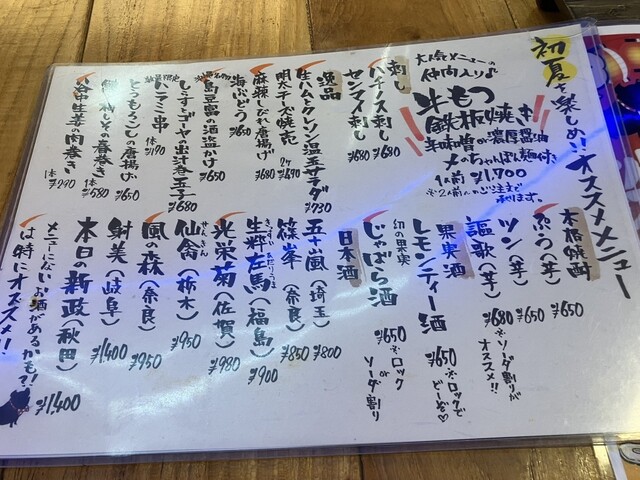 初夏を楽しめ!!オススメメニュー
大人気メニューの
仲間入り♪
牛もつ
鉄板焼き
辛味噌or濃厚醤油
〆のちゃんぽん麺付き
1人前 ¥1,700
※2人前〜のご注文で
承ります。
刺し
ハチノス刺し ¥680
センマイ刺し ¥680
逸品
生ハムとクレソン温玉サラダ ¥730
明太チーズ焼売 2ケ ¥690
麻辣しびれ唐揚げ ¥680
海ぶどう ¥650
島豆腐の酒盗かけ ¥650
しらすとゴーヤの出汁巻玉子 ¥680
数量限定
ハラミ串 1本 ¥190
とうもろこしの唐揚げ ¥650
梅しその春巻き 1本 ¥580
谷中生姜の肉巻き 1本 ¥290
本格焼酎
ぷう(芋) ¥650
ツン(芋) ¥650
謳歌(芋) ¥680 ※ソーダ割りが
オススメ!!
果実酒
レモンティー酒 ¥650 ※ロックで
どーぞ♡
幻の果実
じゃばら酒 ¥650 ※ロック
or
ソーダ割り
日本酒
五十嵐(埼玉) ¥800
篠峯(奈良) ¥850
生粋左馬(福島) ¥900
光栄菊(佐賀) ¥980
仙禽(栃木) ¥950
せんきん
風の森(奈良) ¥950
射美(岐阜) ¥1,400
本日の新政(秋田) ¥1,400
メニューにないお酒があるかも?!
は特にオススメ!!